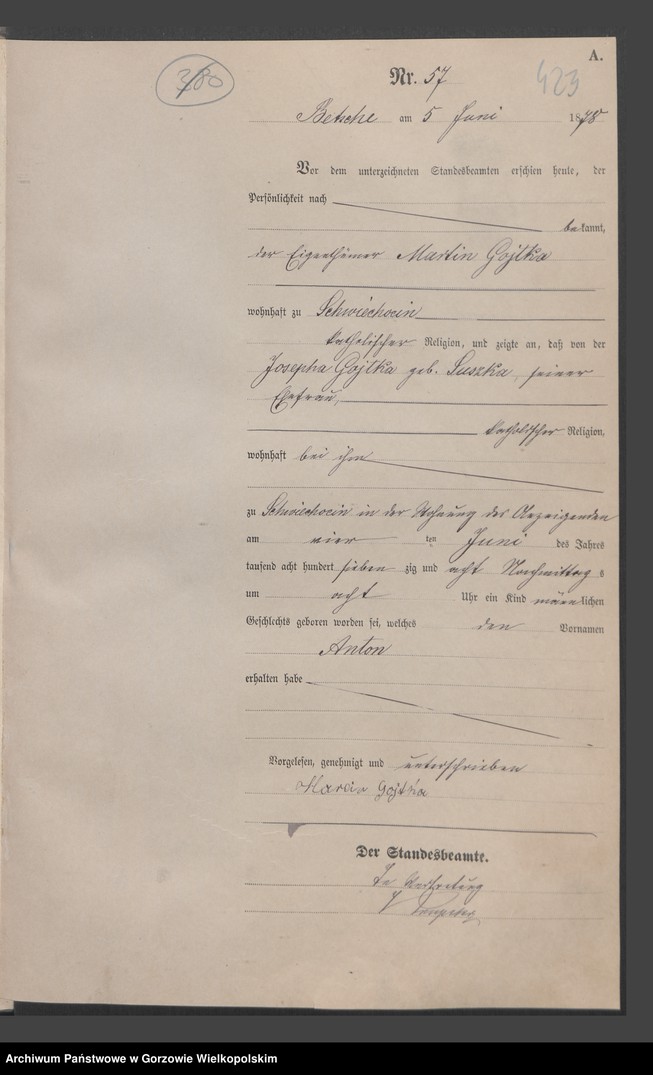 A.
380
423
Nr. 57
Betsche am 5 Juni 1878
Vor dem unterzeichneten Standesbeamten erschien heute, der
Persönlichkeit nach
bekannt,
der Eigenthümer Martin Gojtka
wohnhaft zu Schwiechocin
katholischer Religion, und zeigte an, daß von der
Josepha Gojtka geb. Suszka, seiner
Ehefrau,
katholischer Religion,
wohnhaft bei ihm
zu Schwiechocin in der Wohnung des Anzeigenden
am vier ten Juni des Jahres
tausend acht hundert sieben zig und acht Nachmittag s
um acht Uhr ein Kind männlichen
Geschlechts geboren worden sei, welches den Vornamen
Anton
erhalten habe
Vorgelesen, genehmigt und unterschrieben
Marcin Gojtka
Der Standesbeamte.
In Vertretung
Archiwum Państwowe w Gorzowie Wielkopolskim